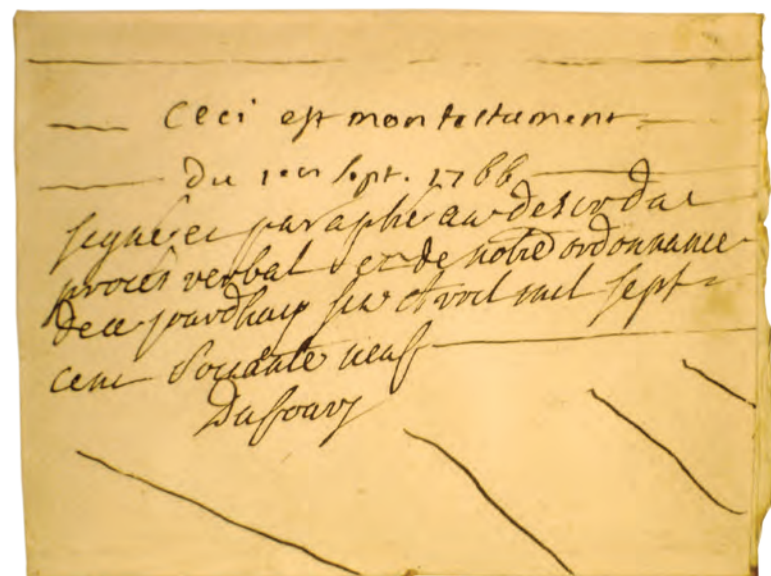 Ceci est mon testament
Du 1er Sept. 1766
signé et paraphé au desir de
procès verbal et de notre ordonnance
de ce jourdhuy six Avril mil sept
cent soixante neuf
Dufour